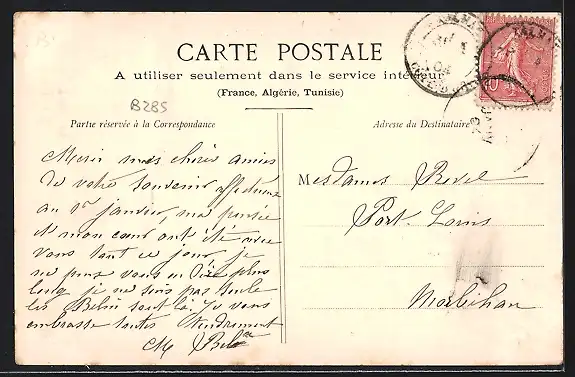 CARTE POSTALE
A utiliser seulement dans le service intérieur
(France, Algérie, Tunisie)
B285
Partie réservée à la Correspondance
Adresse du Destinataire
Merci mes chères amies
de votre souvenir affectueux
au 1er janvier, ma pensée
et mon cœur ont été avec
vous tout ce jour, je
ne puis vous en dire plus
long je ne suis pas seule
les Belin sont là. Je vous
embrasse toutes tendrement
M
Mesdames Revel
Port Louis
Morbihan
04
10